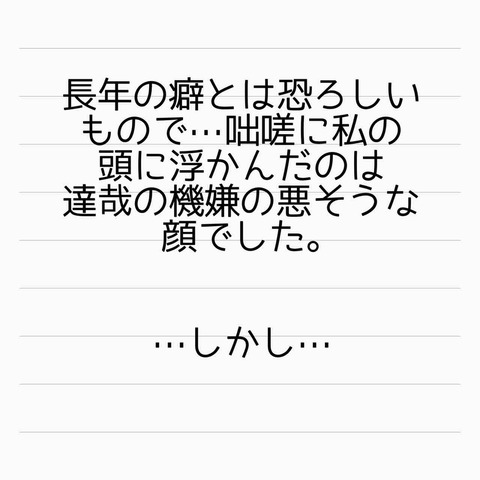 長年の癖とは恐ろしい
もので…咄嗟に私の
頭に浮かんだのは
達哉の機嫌の悪そうな
顔でした。
…しかし…